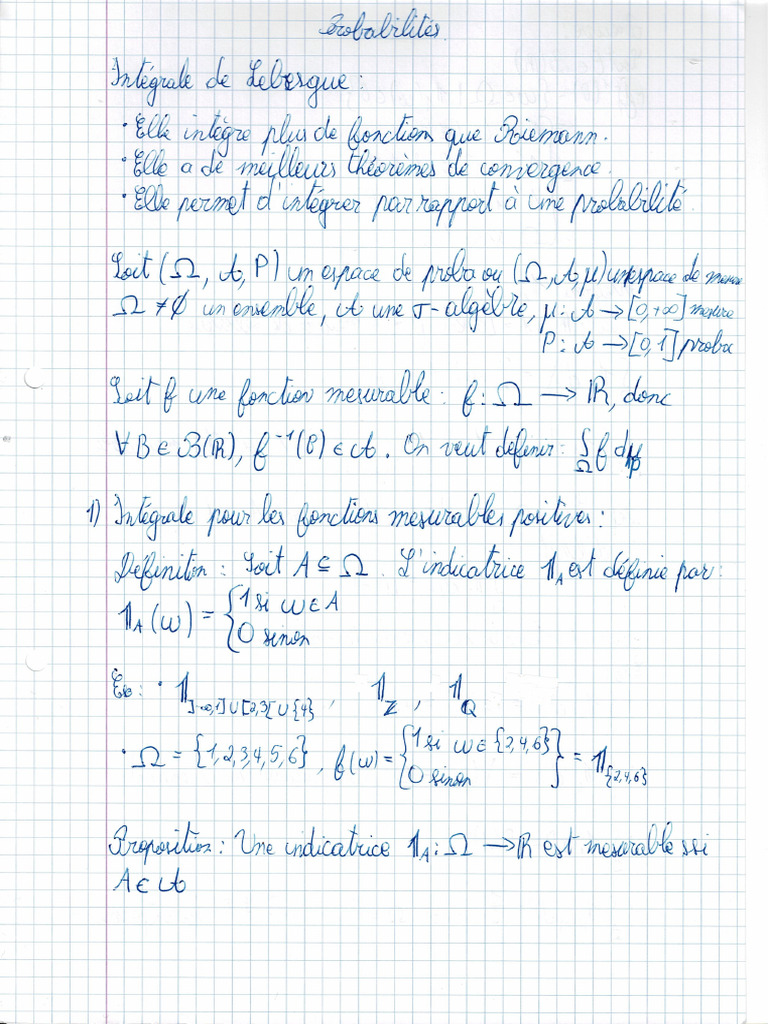 Probabilités.
Intégrale de Lebesgue :
• Elle intègre plus de fonctions que Riemann.
• Elle a de meilleurs théorèmes de convergence.
• Elle permet d'intégrer par rapport à une probabilité.
Soit (Ω, 𝒜, P) un espace de proba ou (Ω, 𝒜, μ) un espace de mesure
Ω ≠ ∅ un ensemble, 𝒜 une σ-algèbre, μ : 𝒜 → [0, +∞] mesure
P : 𝒜 → [0, 1] proba
Soit f une fonction mesurable : f : Ω → ℝ, donc
∀ B ∈ ℬ(ℝ), f⁻¹(B) ∈ 𝒜. On veut définir : ∫_Ω f dμ
1) Intégrale pour les fonctions mesurables positives :
Définition : Soit A ⊆ Ω. L'indicatrice 𝟙_A est définie par :
𝟙_A(ω) = { 1 si ω ∈ A
0 sinon
Ex : • 𝟙_]-∞,1]∪[2,3[∪{4}, 𝟙_ℤ, 𝟙_ℚ
• Ω = {1,2,3,4,5,6}, f(ω) = { 1 si ω ∈ {2,4,6} } = 𝟙_{2,4,6}
0 sinon
Proposition : Une indicatrice 𝟙_A : Ω → ℝ est mesurable ssi
A ∈ 𝒜